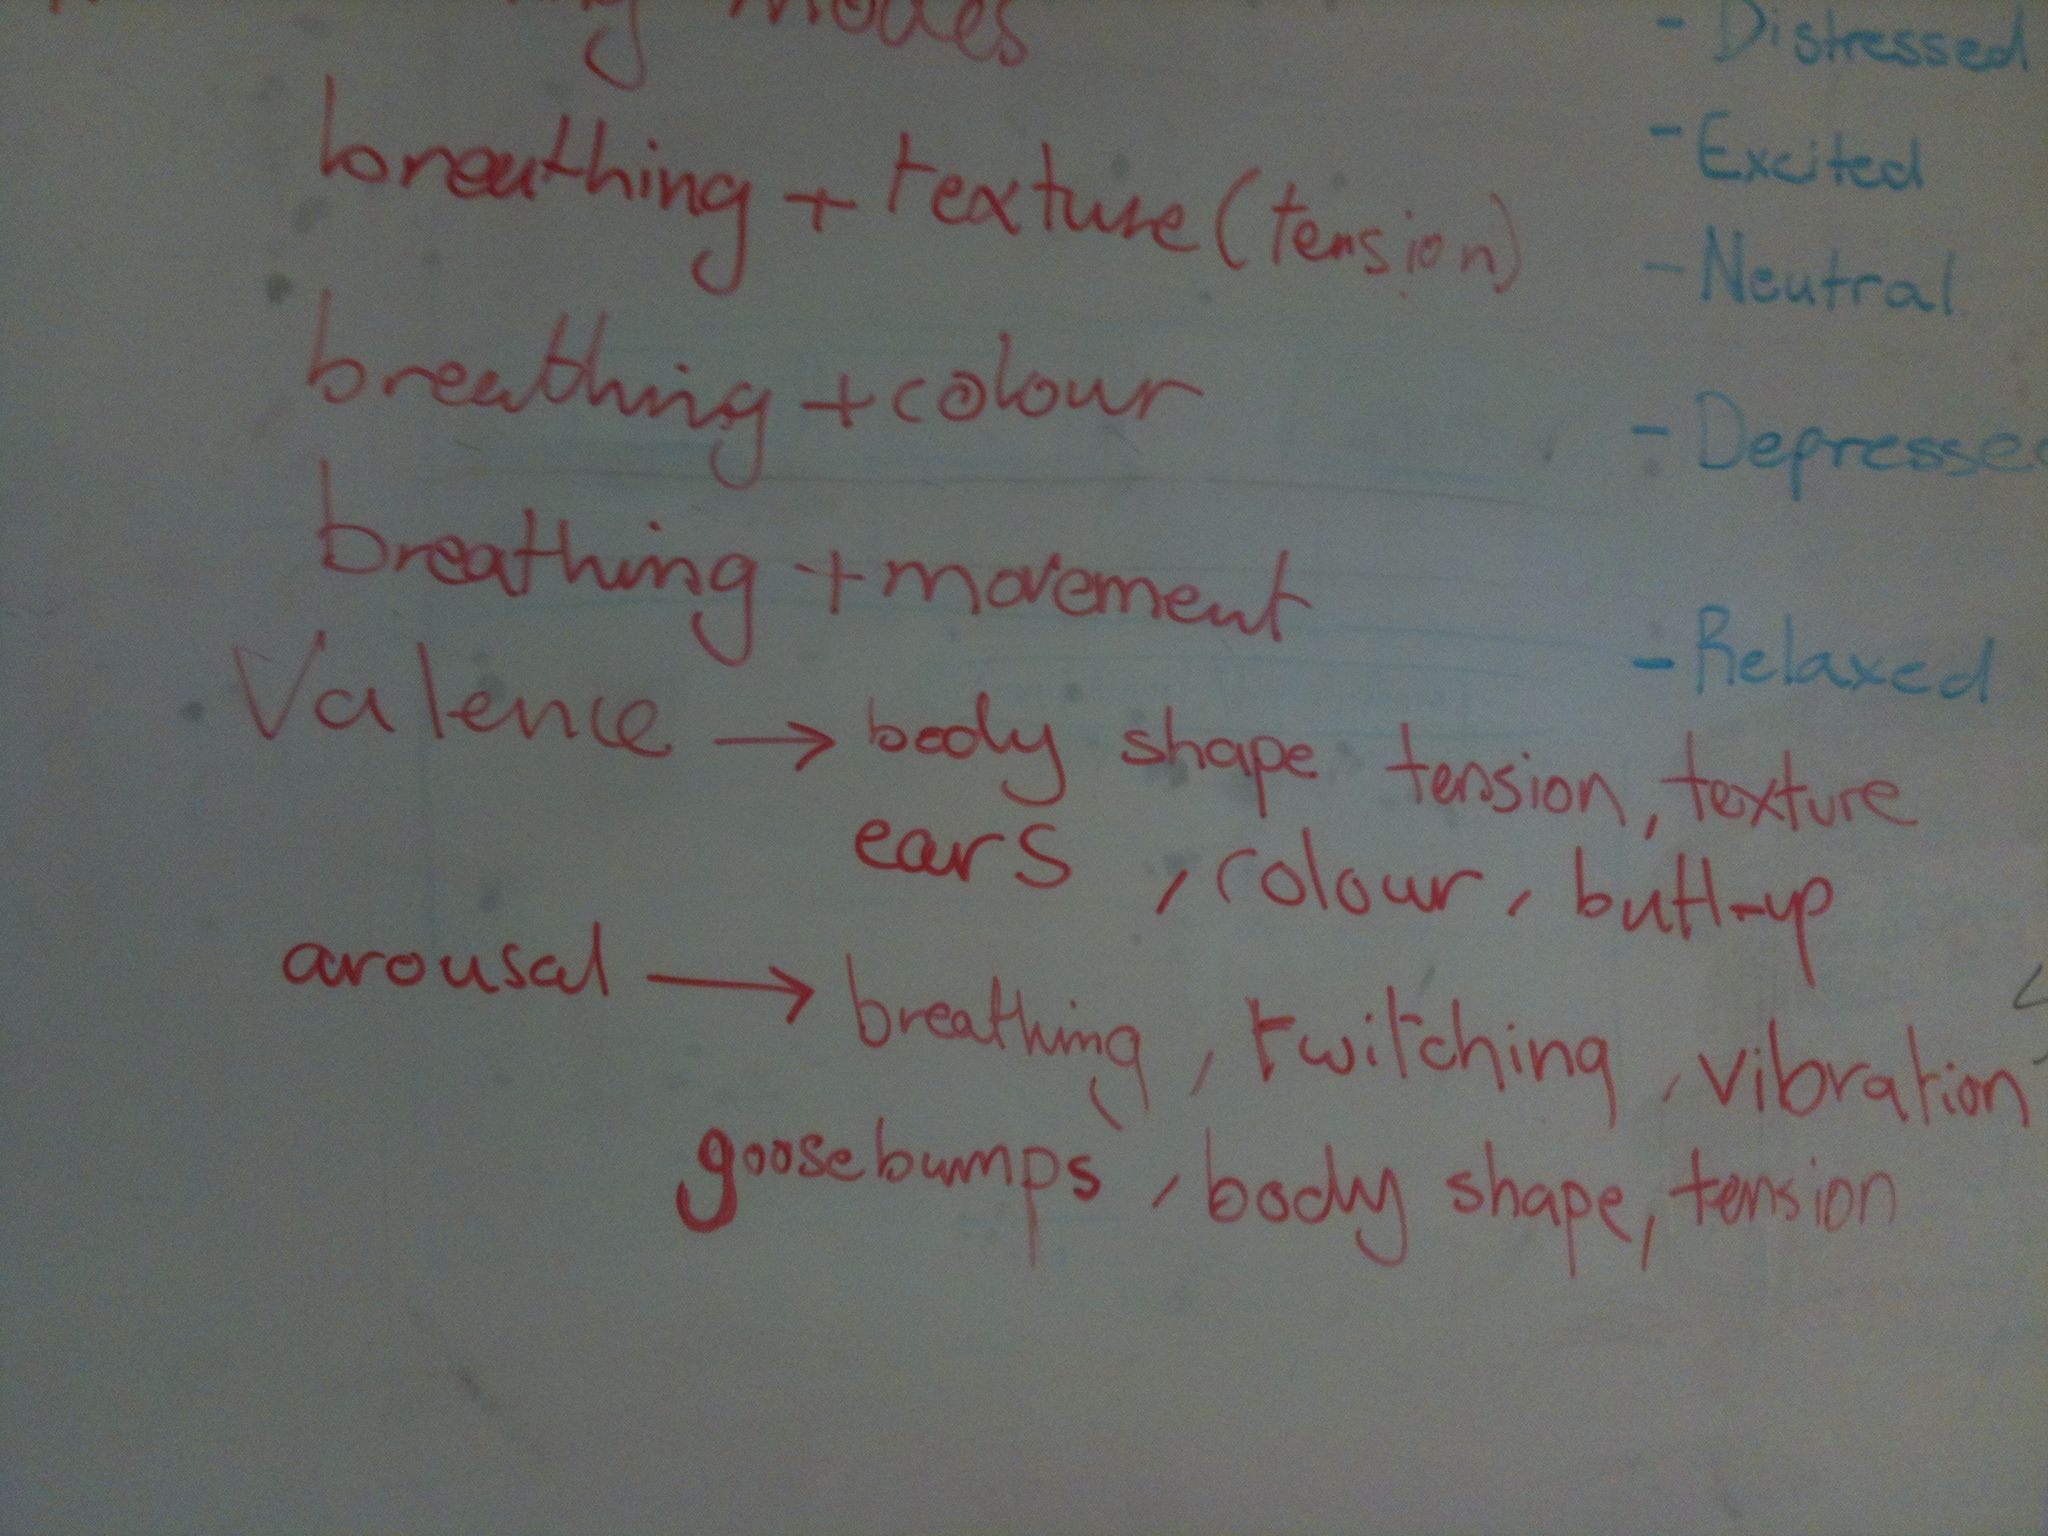 modes
breathing + texture (tension)
breathing + colour
breathing + movement
Valence → body shape tension, texture
ears , colour, butt-up
arousal → breathing, twitching, vibration
goosebumps, body shape, tension
- Distressed
- Excited
- Neutral
- Depressed
- Relaxed